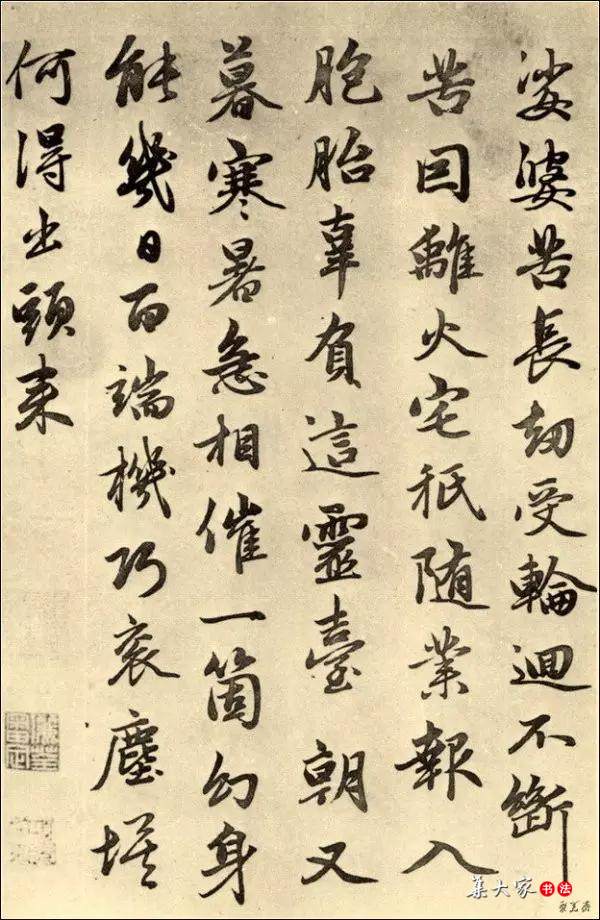 娑婆苦長劫受輪迴不斷
苦因離火宅秖随業報入
胞胎辜負這靈臺朝又
暮寒暑急相催一箇幻身
能幾日百端機巧衮塵埃
何得出頭来
集大家书法